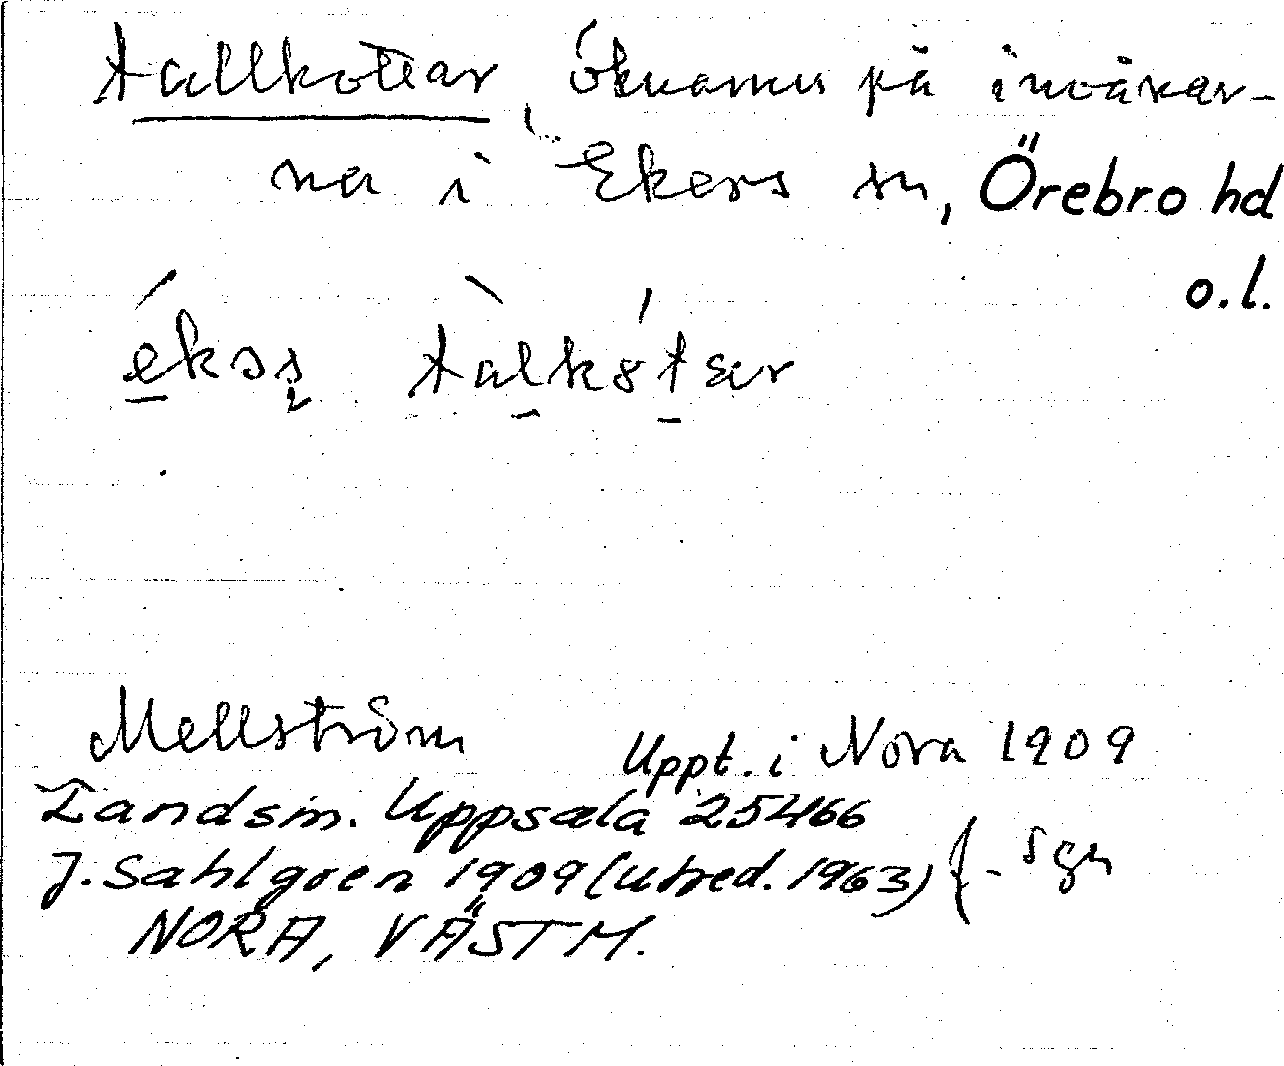 tallkottar, öknamn på invånar-
na i Ekers sn, Örebro hd
o.l.
Mellström Uppt. i Nora 1909
Landsm. Uppsala 25466
J. Sahlgren 1909 (utred. 1963) f. sgn
NORA, VÄSTM.